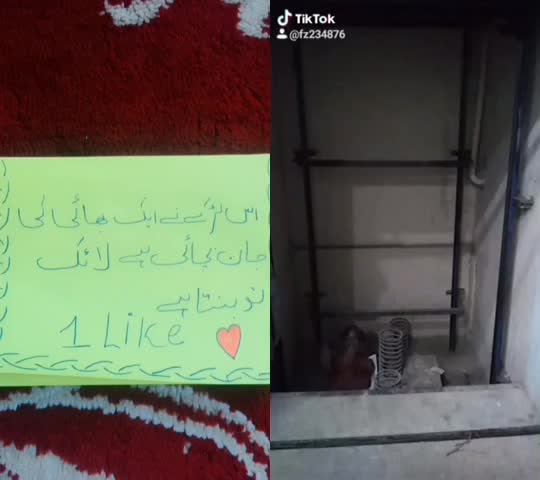 اس لڑکے نے ایک بھائی کی
جان بچائی ہے لائک
تو بنتا ہے
1 Like
TikTok
@fz234876